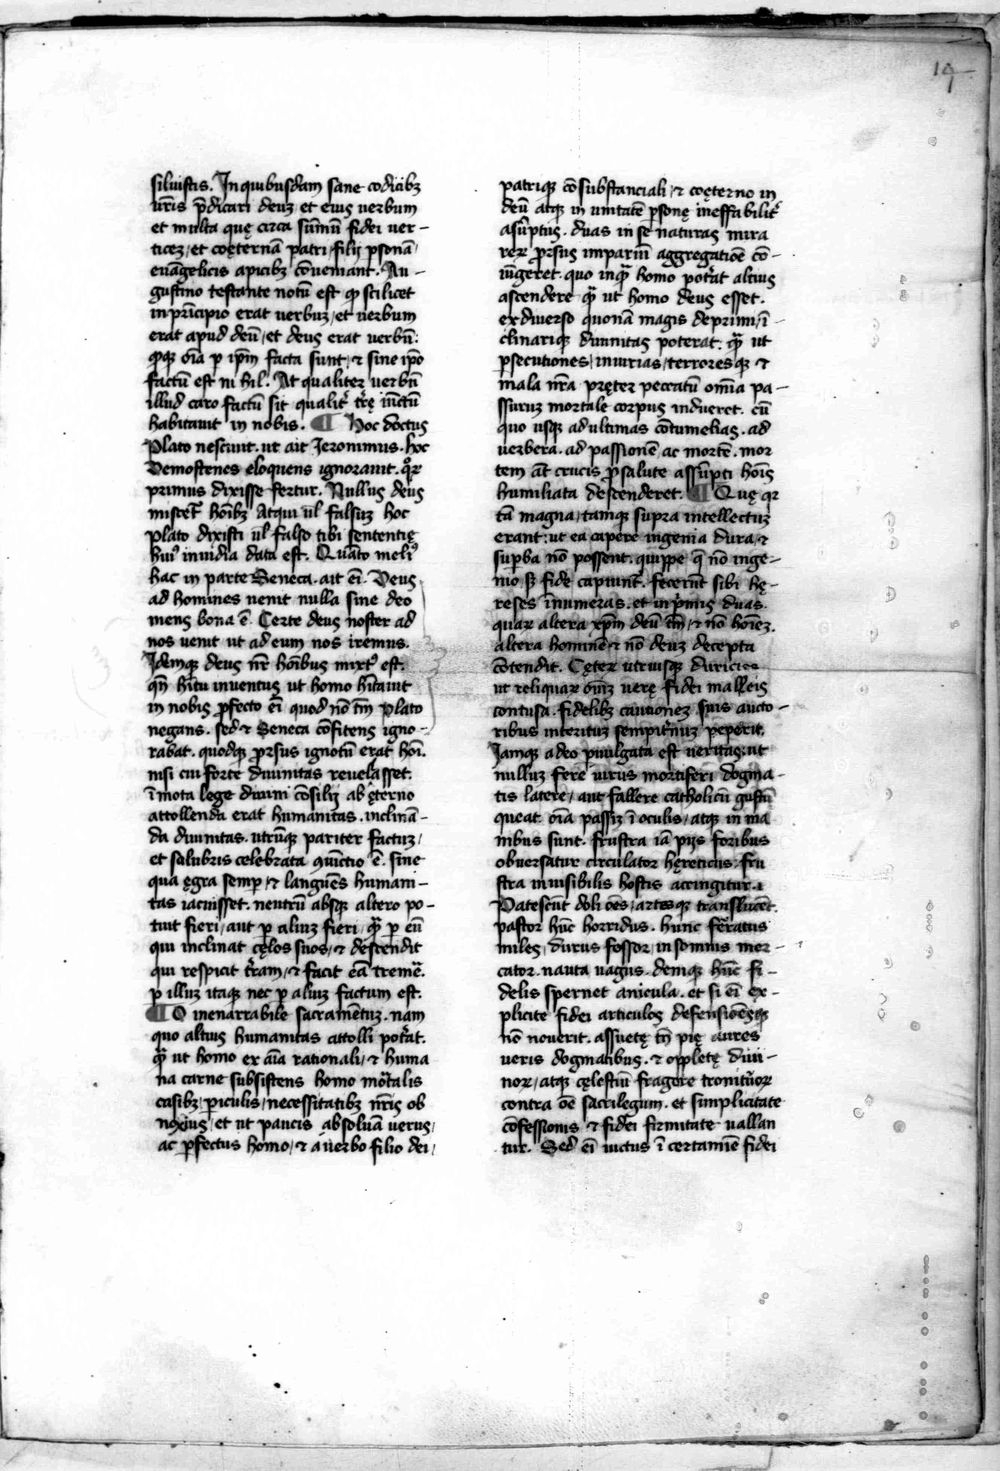 19
siluistis. In quibusdam sane codicibꝫ
ur̄is p̄dicari deuꝫ et eius uerbum
et multa quę circa sūmū fidei uer-
ticeꝫ, et coęternā patri, filij ꝑsonā,
euāgelicis apicibꝫ cōueniant. Au-
gustino testante notū est ꝙ scilicet
in principio erat uerbuꝫ, et uerbum
erat apud deū, et deus erat uerbū:
ꝙqꝫ oīa ꝑ ip̄m facta sunt, ⁊ sine ip̄o
factū est ni hil. At qualiter uerbū
illud caro factū sit qualit᷑ tr̄ę iūctū
habitauit in nobis. ¶ Hoc doctus
Plato nesciuit. ut ait Ieronimus. hoc
Demostenes eloquens ignorauit. qꝛ
primus dixisse fertur. Nullus deus
miscet᷑ hoībꝫ Atqui ul̄ falsuꝫ hoc
Plato dixisti ul̄ falso tibi sententię
huiꝰ inuidia data est. Quāto meliꝰ
hac in parte Seneca. ait ei. Deus
ad homines uenit nulla sine deo
mens bona ē. Certe deus noster ad
nos uenit ut ad eum nos iremus.
Idemqꝫ deus nr̄ hoībus mixtꝰ est.
qn̄ hītu inuentus ut homo hītauit
in nobis ꝓfecto ei quod nō tm̄ Plato
negans. sed ⁊ Seneca cōfitens igno-
rabat. quodqꝫ ꝓrsus ignotū erat hoī.
nisi cui forte diuinitas reuelasset.
īmota lege diuini cōsilij ab ęterno
attollenda erat humanitas. inclinā-
da diuinitas. utrūqꝫ pariter factuꝫ,
et salubris celebrata quīctio ē. sine
qua ęgra semꝑ, ⁊ languēs humani-
tas iacuisset. neutrū absqꝫ altero po-
tuit fieri, aut ꝑ aliuꝫ fieri, qͣ̄ ꝑ eū
qui inclinat cęlos suos, ⁊ descendit
qui respicit tr̄am, ⁊ facit eā tremē.
ꝑ illuꝫ itaqꝫ nec ꝑ aliuꝫ factum est.
¶ O inenarrabile sacramētuꝫ. nam
quo altius humanitas attolli potĩat.
qͣ̄ ut homo ex aīa rationali, ⁊ huma
na carne subsistens homo mortalis
casibꝫ, ꝑiculis, necessitatibꝫ nr̄is ob
noxius, et ut paucis absoluā uerus,
ac ꝑfectus homo, ⁊ a uerbo filio dei,
patriqꝫ cōsubstanciali, ⁊ coęterno in
deū atqꝫ in unitatē ꝑsonę ineffabilit᷑
asūptus. duas in se naturas mira
reꝝ ꝓrsus impariū aggregatiōe cō-
iūgeret. quo inqͣ̄ homo potĩat altius
ascendere qͣ̄ ut homo deus esset.
ex diuerso quonā magis deprimi, ī-
clinariqꝫ diuinitas poterat. qͣ̄ ut
ꝑsecutiones, iniurias, terroresqꝫ ⁊
mala nr̄a pręter peccatū omīa pa-
ssurus mortale corpus indueret. cū
quo usqꝫ ad ultimas cōtumelias. ad
uerbera. ad passionē ac mortē. mor
tem āt crucis ꝓ salute assūpti hoīs
humiliata descenderet. ¶ Quę qꝛ
tā magna, tamqꝫ supra intellectuꝫ
erant: ut ea capere ingenia dura, ⁊
suꝑba nō possent. quippe q̄ nō inge-
nio sꝫ fide capiunt᷑. fecerūt sibi hę-
reses īnumeras. et in p̄mis duas.
quaꝝ altera xp̄m deū tm̄, ⁊ nō hoīeꝫ.
altera hominē ⁊ nō deuꝫ decepta
cōtendit. Cęter utriusqꝫ duricies
ut reliquaꝝ oīuꝫ uerę fidei malleis
contusa. fidelibꝫ cautioneꝫ suis aucto-
ribus interituꝫ sempit᷑nuꝫ peperit.
Iamqꝫ adeo ꝓuulgata est ueritas: ut
nullus fere uirus mortiferi dogma-
tis latere, aut fallere catholicū gustū
queat. oīa passiꝫ ī oculis, atqꝫ in ma
nibus sunt. frustra iā pijs foribus
obuersatur circulator hęreticus. fru
stra inuisibilis hostis accingitur.
Patescūt doli oēs, artesqꝫ translucēt.
pastor hūc horridus. hunc ferratus
miles, durus fossor, in somnis mer-
cator. nauta uagus. deniqꝫ hūc fi-
delis spernet anicula. et si ei ex-
plicite fidei articulos defensiōesqꝫ
nō nouerit. assuetę tn̄ pię aures
ueris dogmatibus. ⁊ oppletę diui-
noꝝ, atqꝫ cęlestiū fragore tronitruoꝝ
contra ōe sacrilegum. et simplicitate
cōfessionis ⁊ fidei firmitate uallan
tur. Sed ei iuctus ī certamīe fidei